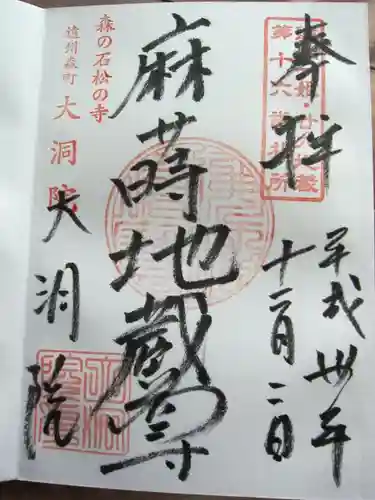 奉拝
第十六番札所
平成廿年
十二月二日
麻蒔地蔵尊
森の石松の寺
遠州森町 大洞院
大洞院